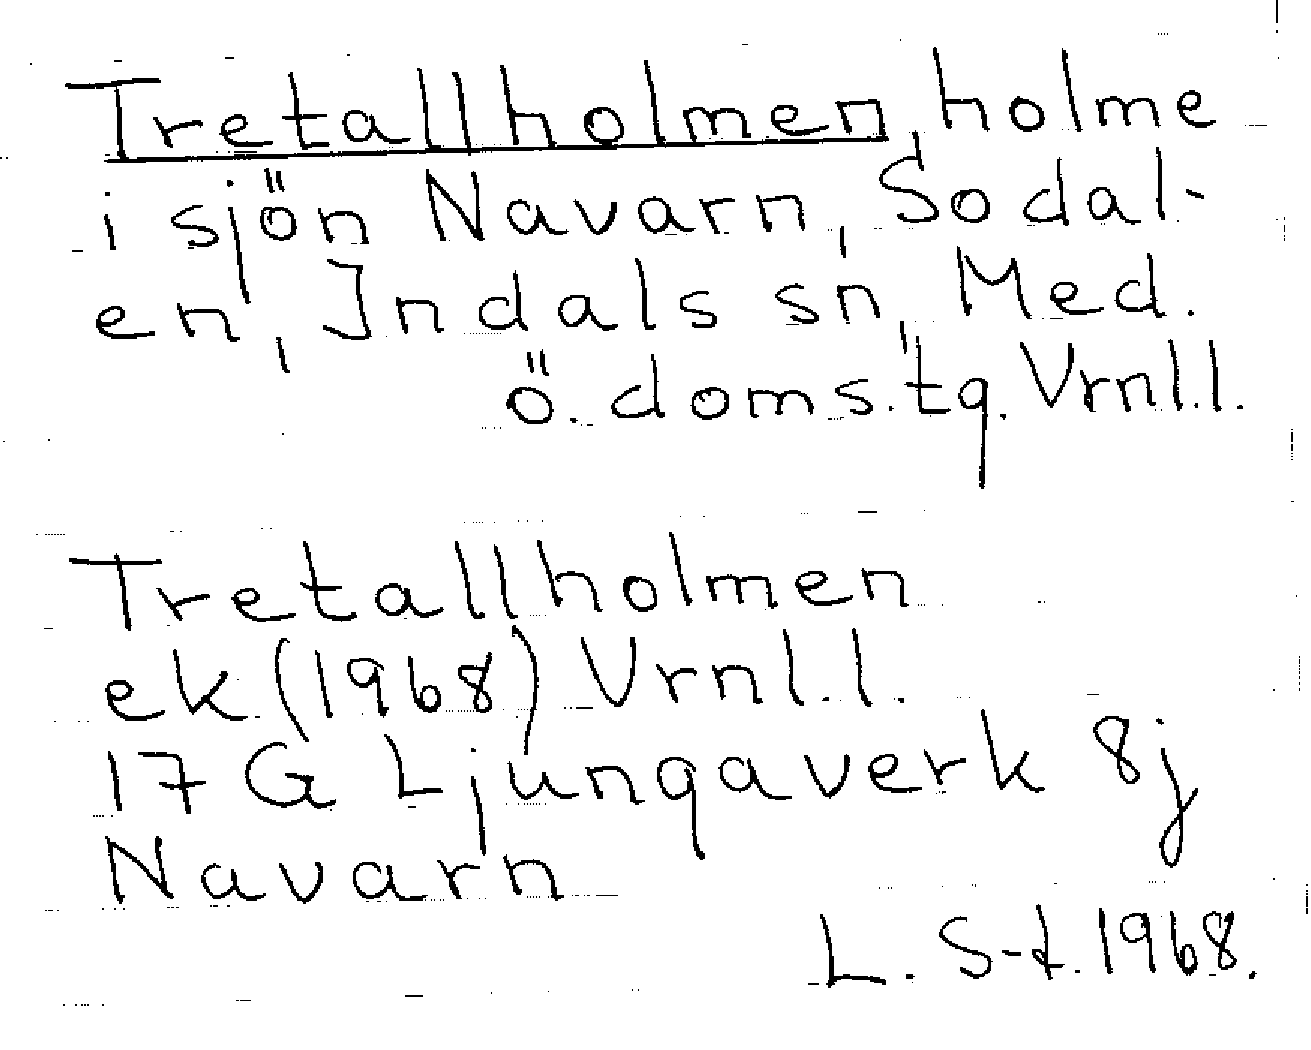 Tretallholmen, holme
i sjön Navarn, Södal-
en, Indals sn, Med.
ö. doms.tg. Vrnl.l.
Tretallholmen
ek (1968) Vrnl.l.
17 G Ljungaverk 8j
Navarn
L. S-t. 1968.